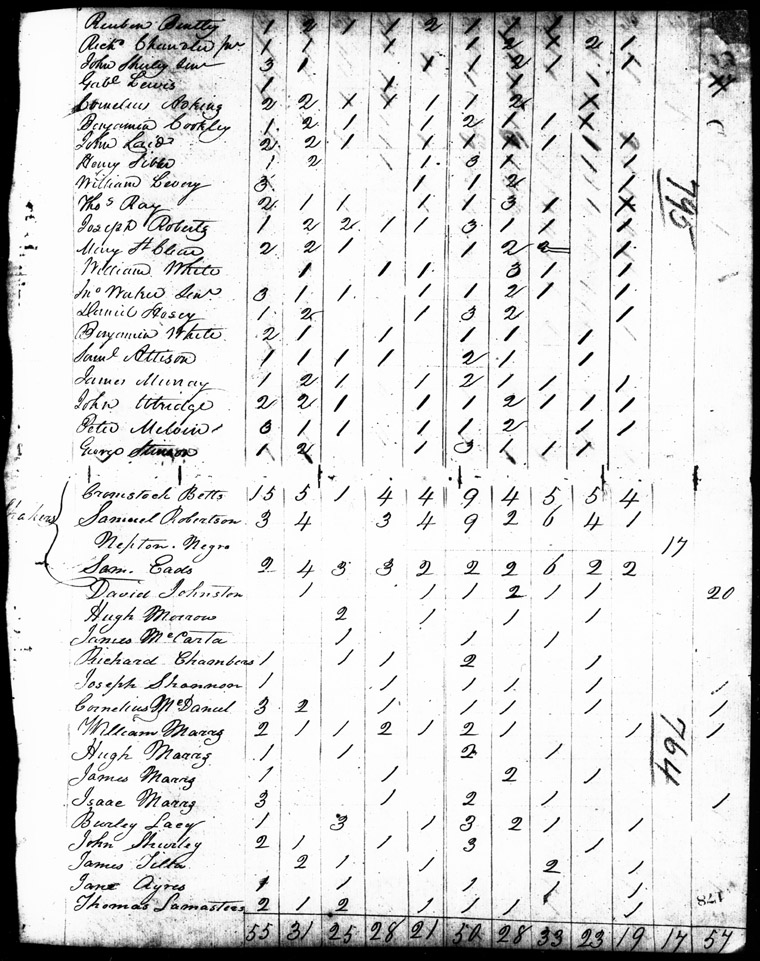 Reuben Bentley 1 2 1 1 2 1 1 1
Richd Chandler Junr 1 1 1 1 2 x 2 1
John Shuly Senr 3 1 x 1 2 1 1 1
Gabl Lewis 1 1 1 1
Cornelius Adking 2 2 x x 1 1 2 x
Benjamin Cookley 1 2 1 1 2 1 1 x
John Laid 2 2 1 1 x x x 1 1 x
Henry 1 2 1 1 3 1 1 1
William Levory 3 1 1 2 1
Thos Ray 2 1 1 1 1 3 x 1 x
Joseph Roberts 1 2 2 1 1 3 1 1 1
Mary St Clear 2 2 1 1 2 2 1
William White 1 1 1 3 1 1
Jno Waker Senr 3 1 1 1 1 2 1 1
Daniel Hosey 1 2 1 3 2 1
Benjamin White 2 1 1 1 1 1
Saml Attison 1 1 1 1 2 1 1
James Murray 1 2 1 1 2 1 1 1
John Utridge 2 2 1 1 1 2 1 1 1
Peter Melvin 3 1 1 1 1 2 1 1
George Stinson 1 2 1 3 1 1 1
795
Cromstock Betts 15 5 1 4 4 9 4 5 5 4
Samuel Robertson 3 4 3 4 9 2 6 4 1
Nepton Negro 17
Sam. Eads 2 4 3 3 2 2 2 6 2 2
David Johnston 1 1 1 2 1 1 20
Hugh Morrow 2 1 1 1
James McCarta 1 1 1
Richard Chambers 1 1 1 2 1
Joseph Shannon 1 1 1 1 1 1
Cornelius McDaniel 3 2 1 1 1 1 1
William Marrs 2 1 1 2 1 2 1 1 1
Hugh Marrs 1 1 2 1
James Marrs 1 1 2 1
Isaac Marrs 3 1 2 1 1
Burley Lacy 1 3 1 3 2 1 1
John Shurley 2 1 1 3 1
James 2 1 1 2 1
Jane Ayres 1 1 1 1 1
Thomas Lamasters 2 1 2 1 1 1 1
764
178
55 31 25 28 21 50 28 33 23 19 17 57